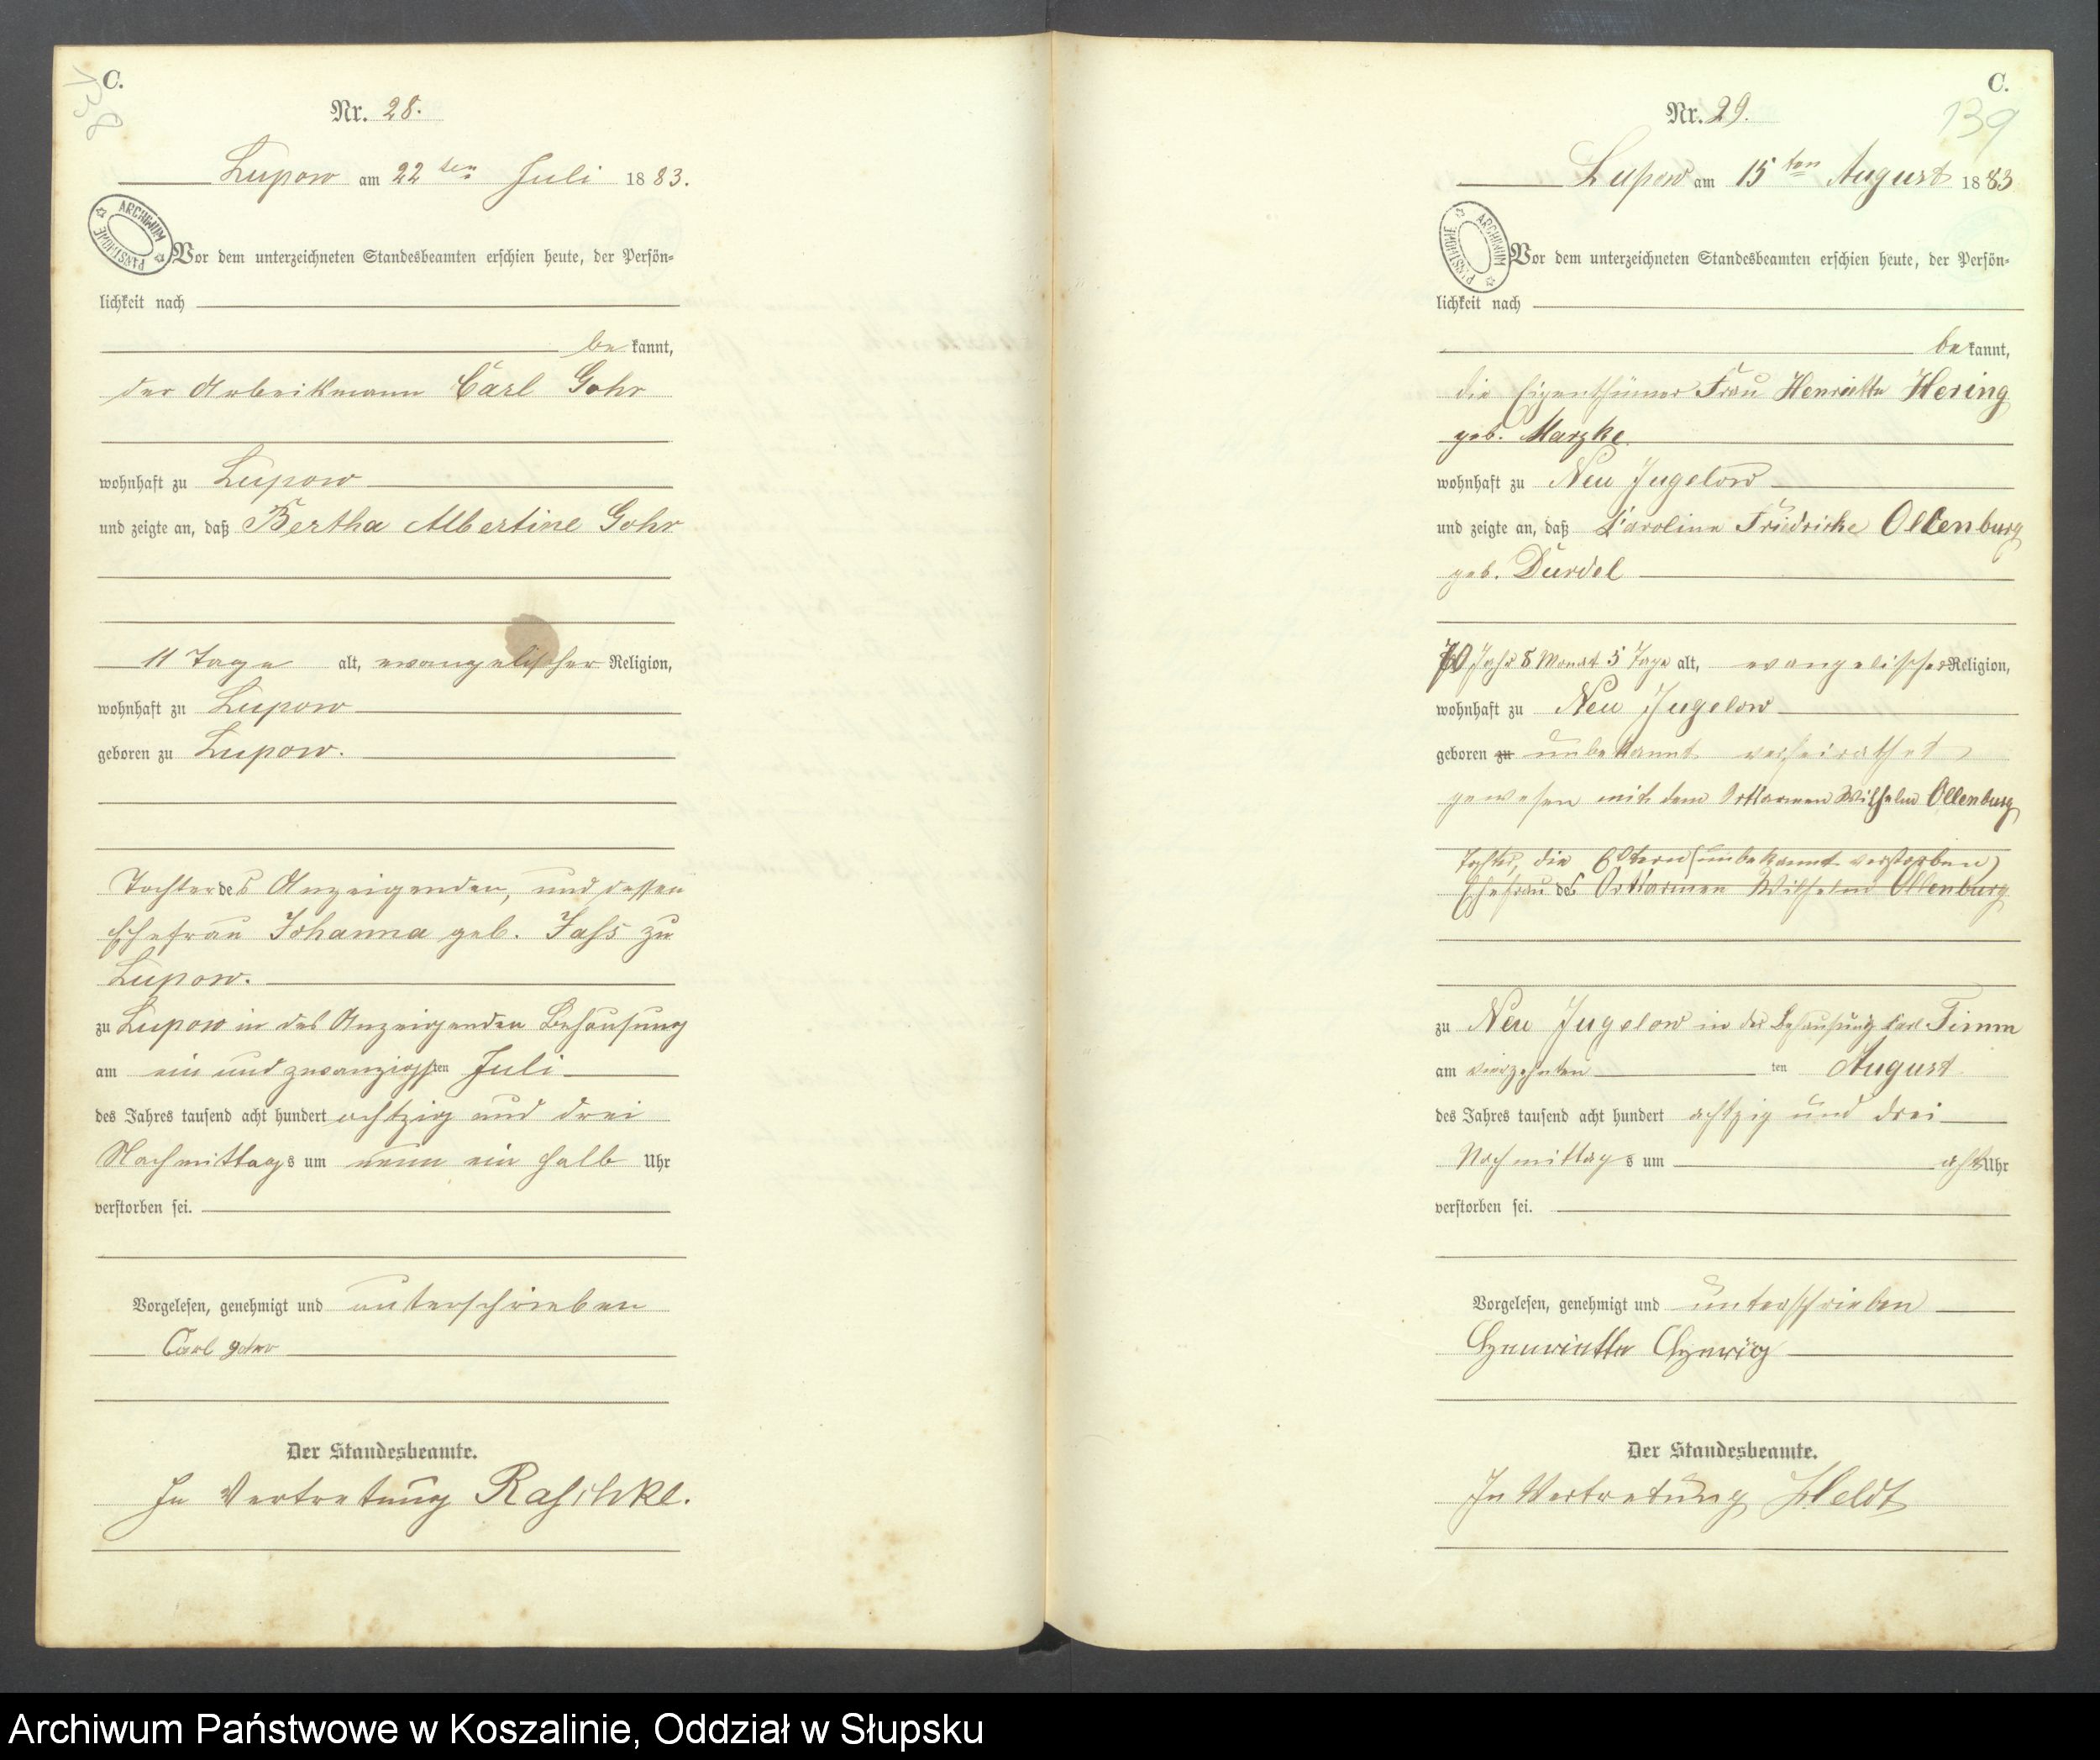 C.
138
Nr. 28.
Lupow am 22ten Juli 1883.
ARCHIWUM PAŃSTWOWE
Vor dem unterzeichneten Standesbeamten erschien heute, der Persön-
lichkeit nach
bekannt,
der Arbeitsmann Carl Gohr
wohnhaft zu Lupow
und zeigte an, daß Bertha Albertine Gohr
11 Tage alt, evangelischer Religion,
wohnhaft zu Lupow
geboren zu Lupow.
Tochter des Anzeigenden, und dessen
Ehefrau Johanna geb. Jass zu
Lupow.
zu Lupow in des Anzeigenden Behausung
am ein und zwanzigsten Juli
des Jahres tausend acht hundert achtzig und drei
Nachmittags um neun ein halb Uhr
verstorben sei.
Vorgelesen, genehmigt und unterschrieben
Carl
Der Standesbeamte.
In Vertretung Raschke.
C.
139
Nr. 29.
Lupow am 15ten August 1883
ARCHIWUM PAŃSTWOWE
Vor dem unterzeichneten Standesbeamten erschien heute, der Persön-
lichkeit nach
bekannt,
die Eigenthümer Frau Henriette Hering
geb. Marzke
wohnhaft zu Neu Jugelow
und zeigte an, daß Karoline Friedricke Ollenburg
geb. Dürdel
70 Jahr 8 Monat 5 Tage alt, evangelischer Religion,
wohnhaft zu Neu Jugelow
geboren zu unbekannt verheirathet
gewesen mit dem Ortsarmen Wilhelm Ollenburg
Tochter, die Eltern (unbekannt verstorben)
Ehefrau des Ortsarmen Wilhelm Ollenburg
zu Neu Jugelow in der Behausung Karl Timm
am vierzehnten ten August
des Jahres tausend acht hundert achtzig und drei
Nachmittags um acht Uhr
verstorben sei.
Vorgelesen, genehmigt und unterschrieben
Henriette
Der Standesbeamte.
In Vertretung Heldt
Archiwum Państwowe w Koszalinie, Oddział w Słupsku